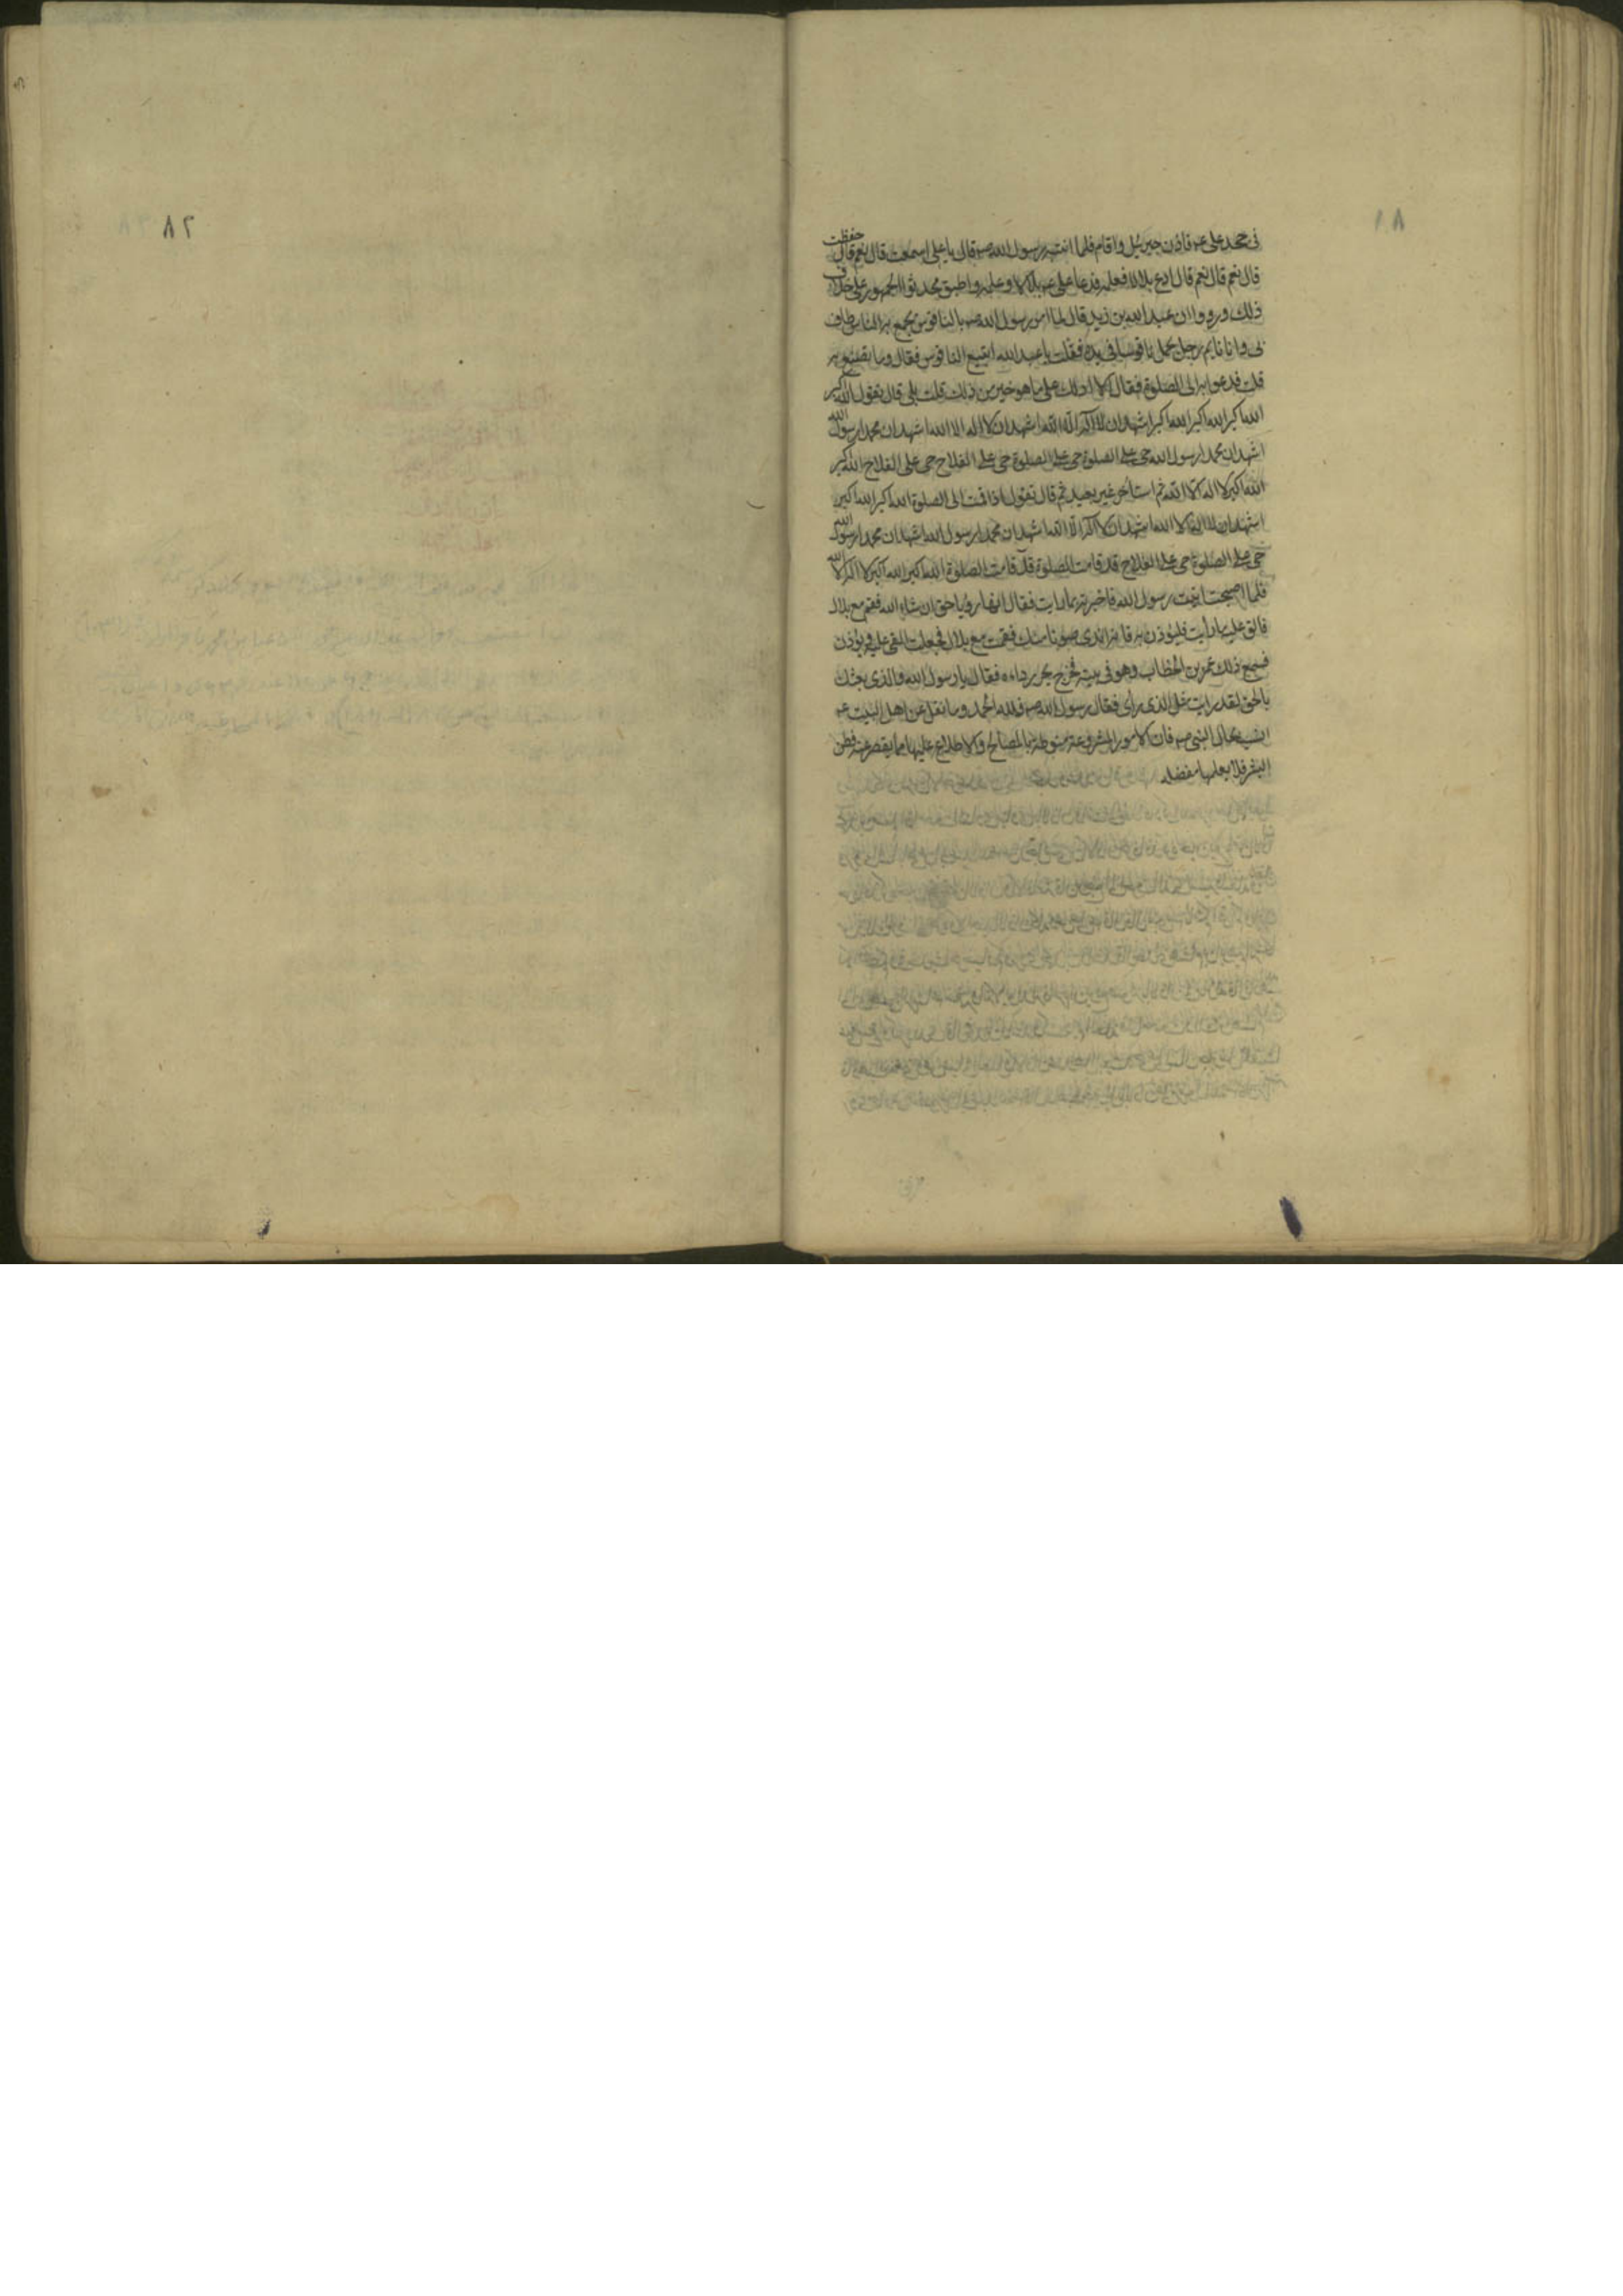 ٨١
فى حجد على عم فاذن جبرئيل واقام فلما انتبه رسول الله صم قال يا على اسمعت قال نعم قال حفظت
قال نعم قال نعم قال ادع بلالا فعلمه فدعا على عم بلالا وعلمه واطبق محدثوا الجمهور على خلاف
ذلك ورووا ان عبد الله بن زيد قال لما امر رسول الله صم بالناقوس يجمع به الناس طاف
بى وانا نايم رجل يحمل ناقوسا فى يده فقلت يا عبد الله اتبيع الناقوس فقال وما تصنع به
قلت ندعوا به الى الصلوة فقال الا ادلك على ما هو خير من ذلك قلت بلى قال تقول الله اكبر
الله اكبر الله اكبر الله اكبر اشهد ان لا اله الا الله اشهد ان لا اله الا الله اشهد ان محمدا رسول الله
اشهد ان محمدا رسول الله حى على الصلوة حى على الصلوة حى على الفلاح حى على الفلاح الله اكبر
الله اكبر لا اله الا الله ثم استأخر غير بعيد ثم قال تقول اذا قمت الى الصلوة الله اكبر الله اكبر
اشهد ان لا اله الا الله اشهد ان لا اله الا الله اشهد ان محمدا رسول الله اشهد ان محمدا رسول الله
حى على الصلوة حى على الفلاح قد قامت الصلوة قد قامت الصلوة الله اكبر الله اكبر لا اله الا الله
فلما اصبحت اتيت رسول الله فاخبرته بما رايت فقال انها رؤيا حق ان شاء الله فقم مع بلال
فالق عليه ما رأيت فليؤذن به فانه اندى صوتا منك فقمت مع بلال فجعلت القى عليه ويؤذن
فسمع ذلك عمر بن الخطاب وهو فى بيته فخرج يجر رداءه فقال يا رسول الله والذى بعثك
بالحق لقد رايت مثل الذى رأى فقال رسول الله صم فلله الحمد وما نقل عن اهل البيت عم
انسب بحال النبى صم فان الامور المشروعة منوطة بالمصالح والاطلاع عليها مما يقصر عنه فطن
البشر فلا يعلمها مفصله
٨٢